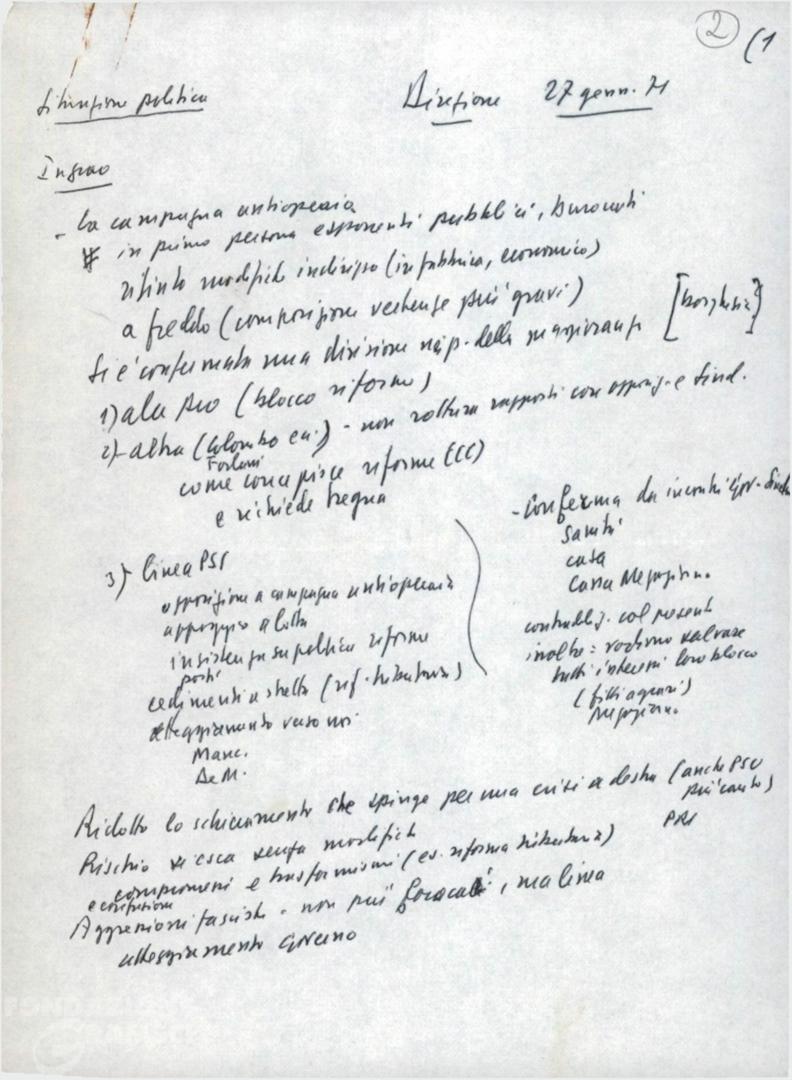 2 (1
Situazione politica Direzione 27 genn. 71
Ingrao
- la campagna antioperaia
in prima persona esponenti pubblici,
rifiuto modifiche indirizzo (in fabbrica, economico)
a freddo (composizione vertenze più gravi)
Si è confermata una divisione della maggioranza [borghesia]
1) ala (blocco riforme)
2) - altra (Colombo ecc.) - non rottura rapporti con opposiz. e Sind.
Forlani
come concepisce riforme (CC)
e richiede tregua
- conferma da incontri gov. - Sind
Sanità
casa
Cassa Mezzogiorno.
3) linea PSI
opposizione a campagna antioperaia
appoggio a lotta
insistenza su politica riforme
posti
cedimenti a stretta (rif. tributaria)
atteggiamento verso noi
Manc.
De M.
contraddiz. col presente
inoltre: vogliono salvare
tutti interessi loro blocco
(fitti agrari)
Mezzogiorno.
Ridotto lo schieramento che spinge per una crisi a destra (anche PSU
più cauto)
PRI
Rischio si esca senza modifiche
compromessi e trasformismi (es. riforma tributaria)
e confusione
Aggressioni fasciste - non più focolai, ma linea
atteggiamento governo
FONDAZIONE
GRAMSCI